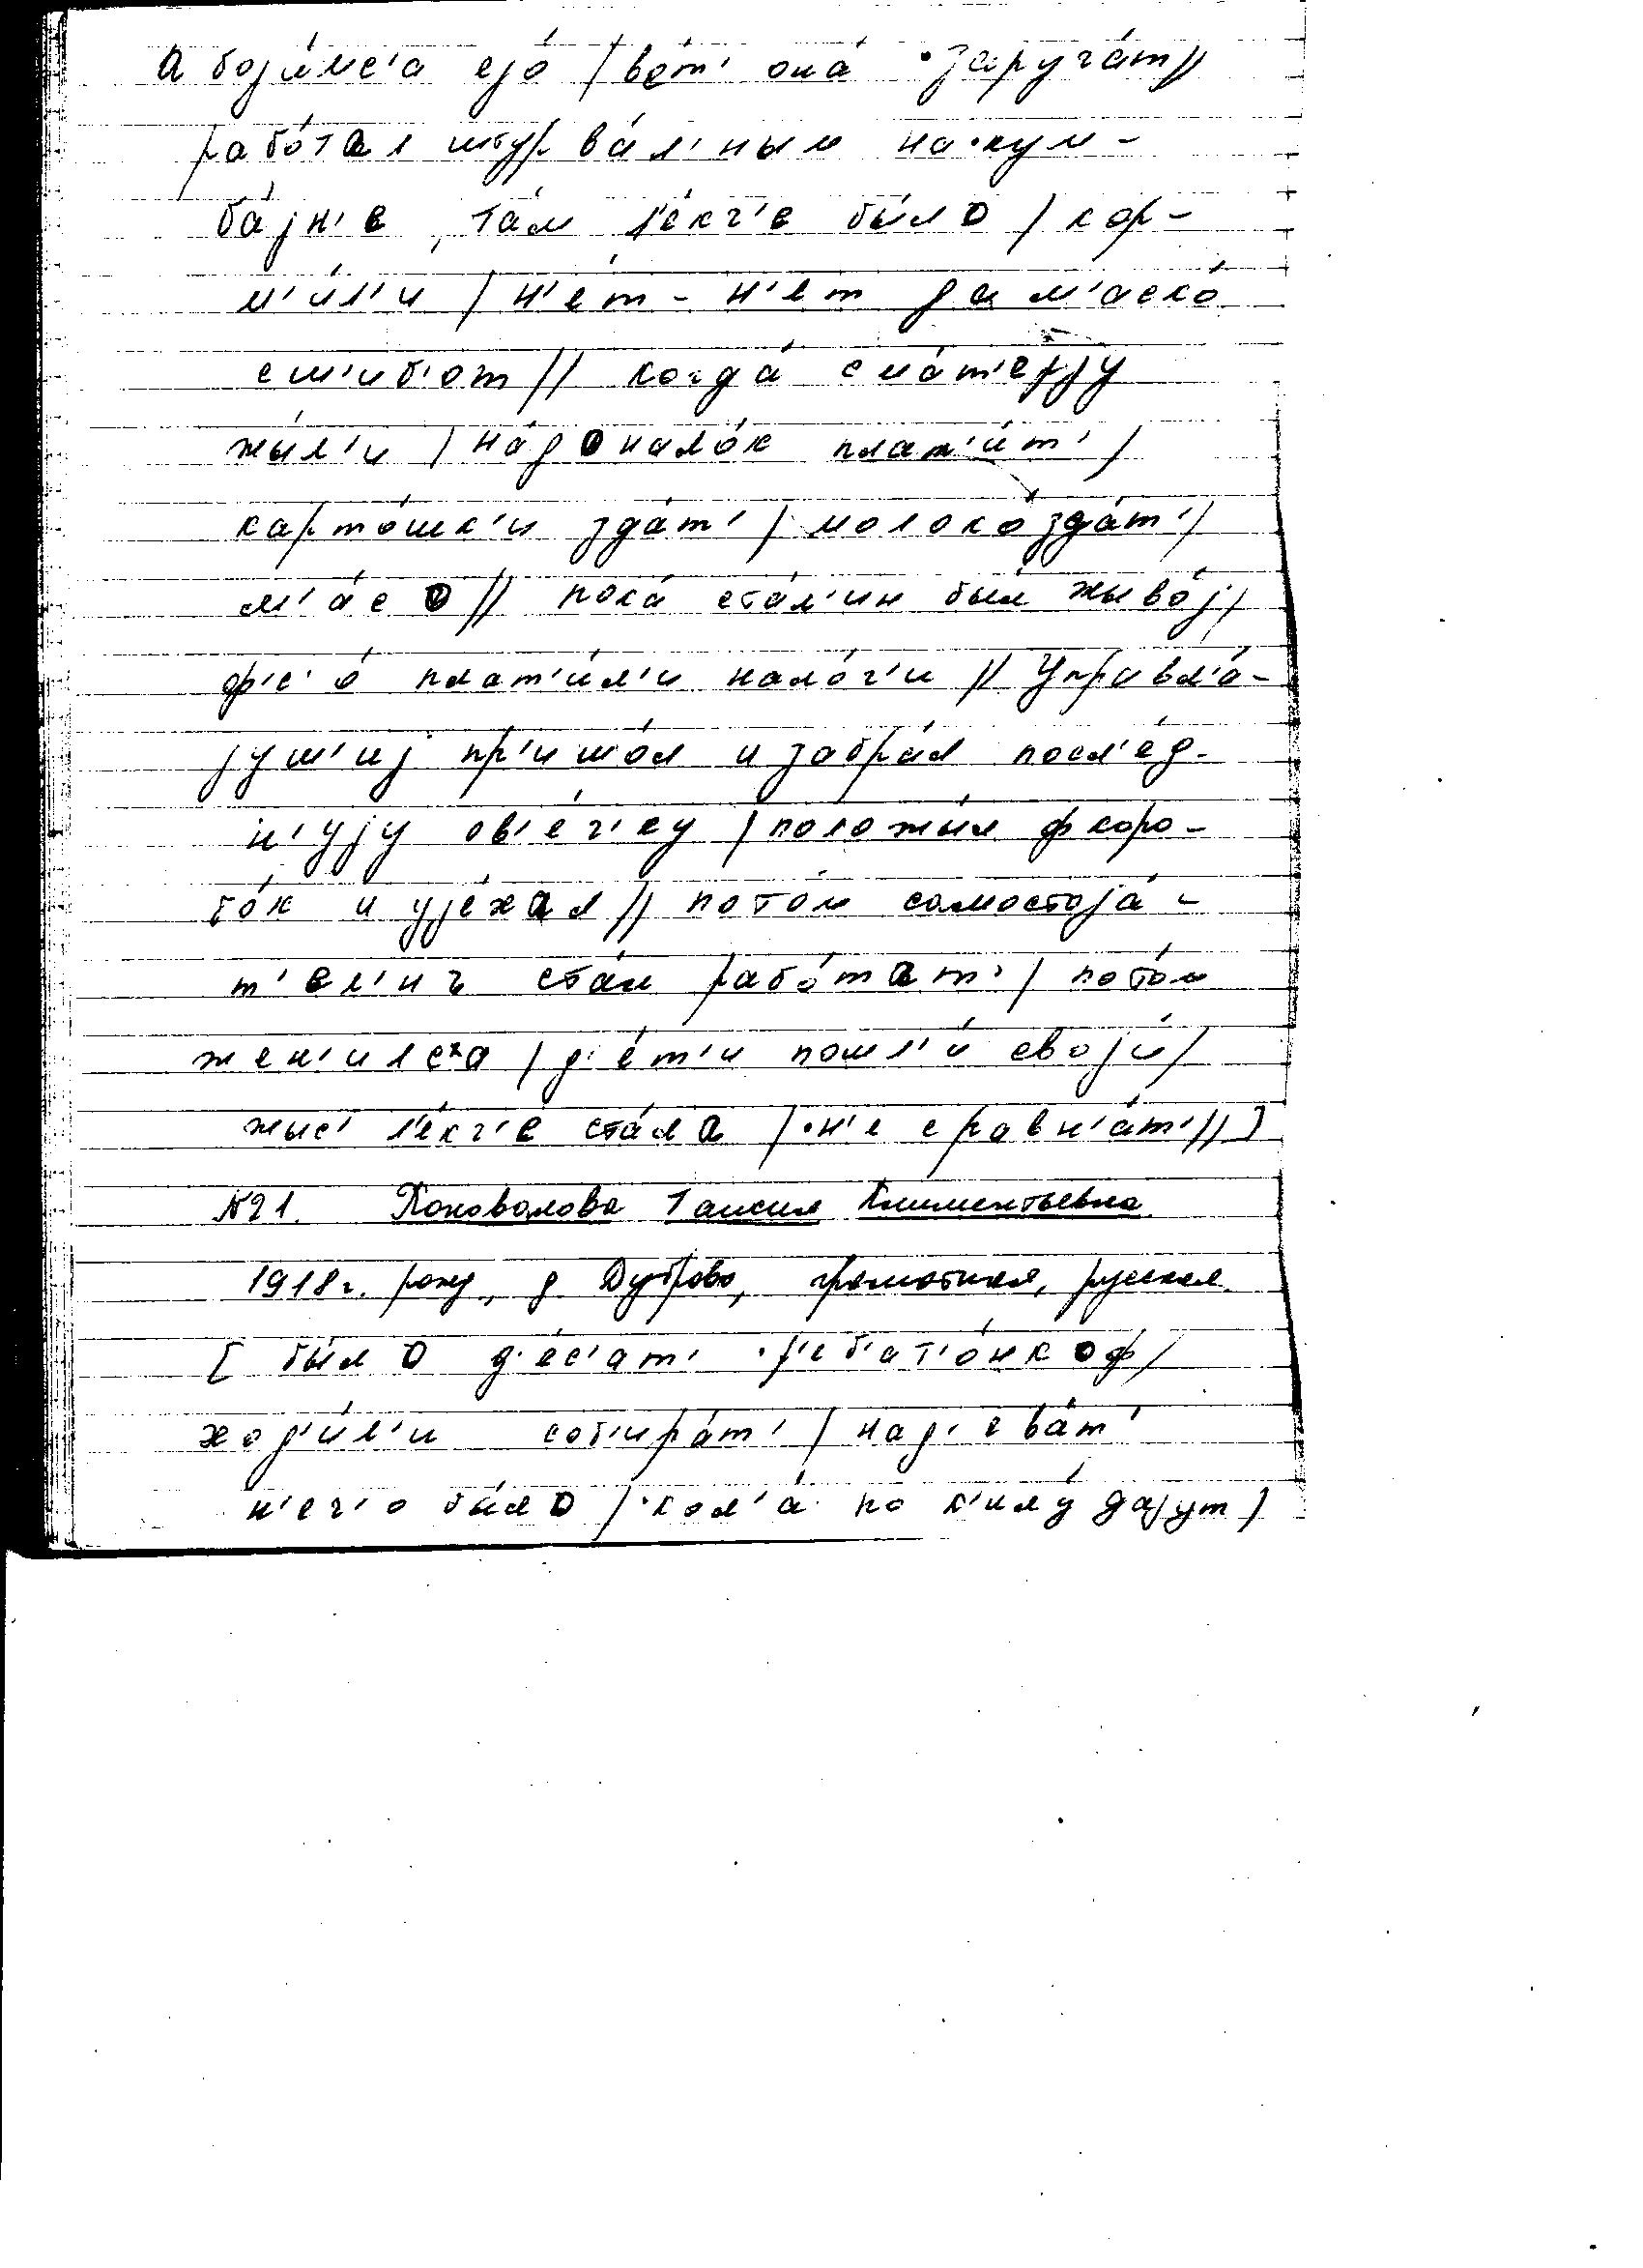 а боjи́мс'а еjо́ / во́т' она́ ·заруча́т //
рабо́тал штурва́л'ным на·кум-
ба́jн'е, та́м л'екч'е бы́ло / кор-
м'и́л'и / н'е́т - н'ет да м'аско́
сш'иб'от // когда́ с ма́т'ерjу
жы́л'и / на́до нало́к плат'и́т' /
карто́шк'и зда́т' / молоко́ зда́т' /
м'а́со // пока́ ста́л'ин был жыво́j /
ф'с'о́ плат'и́л'и нало́г'и // Управл'а́-
jуш'иj пр'ишо́л и забра́л посл'е́д-
н'уjу ов'е́ч'ку / положы́л ф коро-
то́к и уjе́хал // пото́м самостоjа́-
т'ел'нъ ста́л рабо́тат' / пото́м
жен'и́лса / д'е́т'и пошл'и́ своjи́ /
жыс' л'екч'е ста́ла / ·н'е сравн'а́т' // ]
№21. Коновалова Таисия Климентьевна
1918г. рожд, д Дуброво, грамотная, русская.
[ бы́ло д'е́с'ат' ·р'еб'ат'о́нкоф /
ход'и́л'и соб'ира́т' / над'ева́т'
н'еч'о бы́ло / ·кол'а́· по к'илу́ даjут /